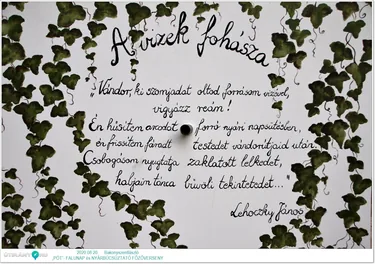 A vizek fohásza
„Vándor, ki szomjadat oltod forrásom vizével,
vigyázz reám!
Én hűsítem arcodat forró nyári napsütésben,
én frissítem fáradt testedet vándorútjaid után.
Csobogásom nyugtatja zaklatott lelkedet,
haljaim tánca bűvöli tekintetedet...
Lehoczky János
2020.08.20.